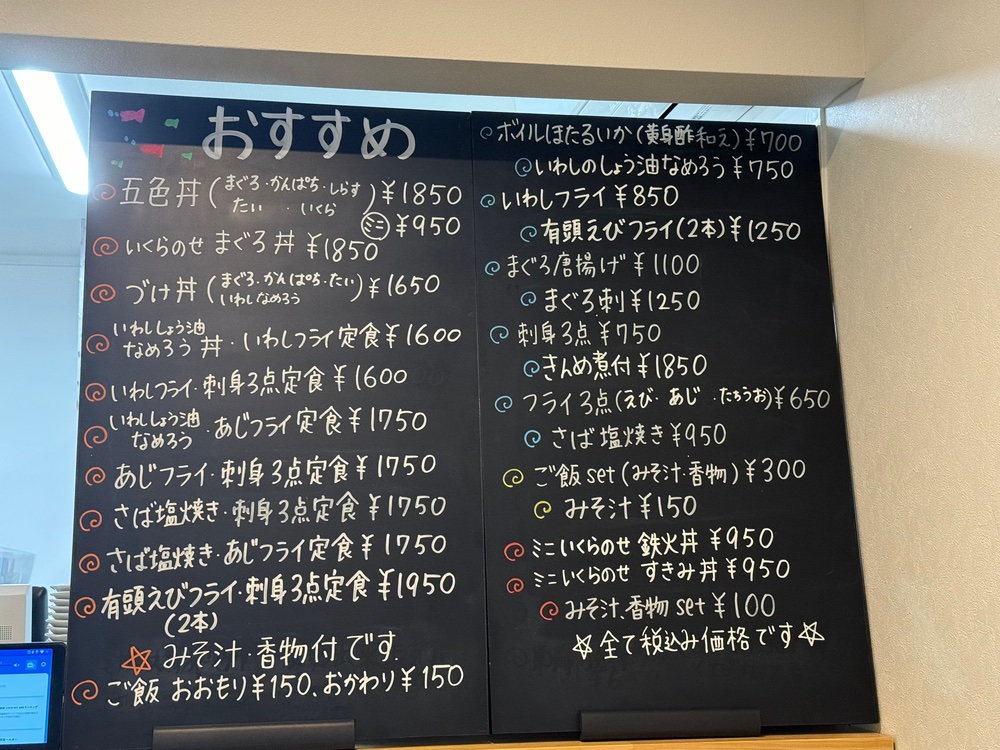 おすすめ
五色丼(まぐろ・かんぱち・しらす
たい ・いくら)¥1850
ミニ ¥950
いくらのせ まぐろ丼 ¥1850
づけ丼(まぐろ・かんぱち・たい
いわしなめろう)¥1650
いわししょう油
なめろう 丼・いわしフライ定食¥1600
いわしフライ・刺身3点定食¥1600
いわししょう油
なめろう・あじフライ定食¥1750
あじフライ・刺身3点定食¥1750
さば塩焼き・刺身3点定食¥1750
さば塩焼き・あじフライ定食¥1750
有頭えびフライ・刺身3点定食¥1950
(2本)
☆みそ汁・香物付です.
ご飯 おおもり¥150、おかわり¥150
ボイルほたるいか(黄身酢和え)¥700
いわしのしょう油なめろう¥750
いわしフライ¥850
有頭えびフライ(2本)¥1250
まぐろ唐揚げ¥1100
まぐろ刺¥1250
刺身3点¥750
きんめ煮付¥1850
フライ3点(えび・あじ・たちうお)¥650
さば塩焼き¥950
ご飯set(みそ汁・香物)¥300
みそ汁¥150
ミニいくらのせ 鉄火丼¥950
ミニいくらのせ すきみ丼¥950
みそ汁、香物set¥100
☆全て税込み価格です☆